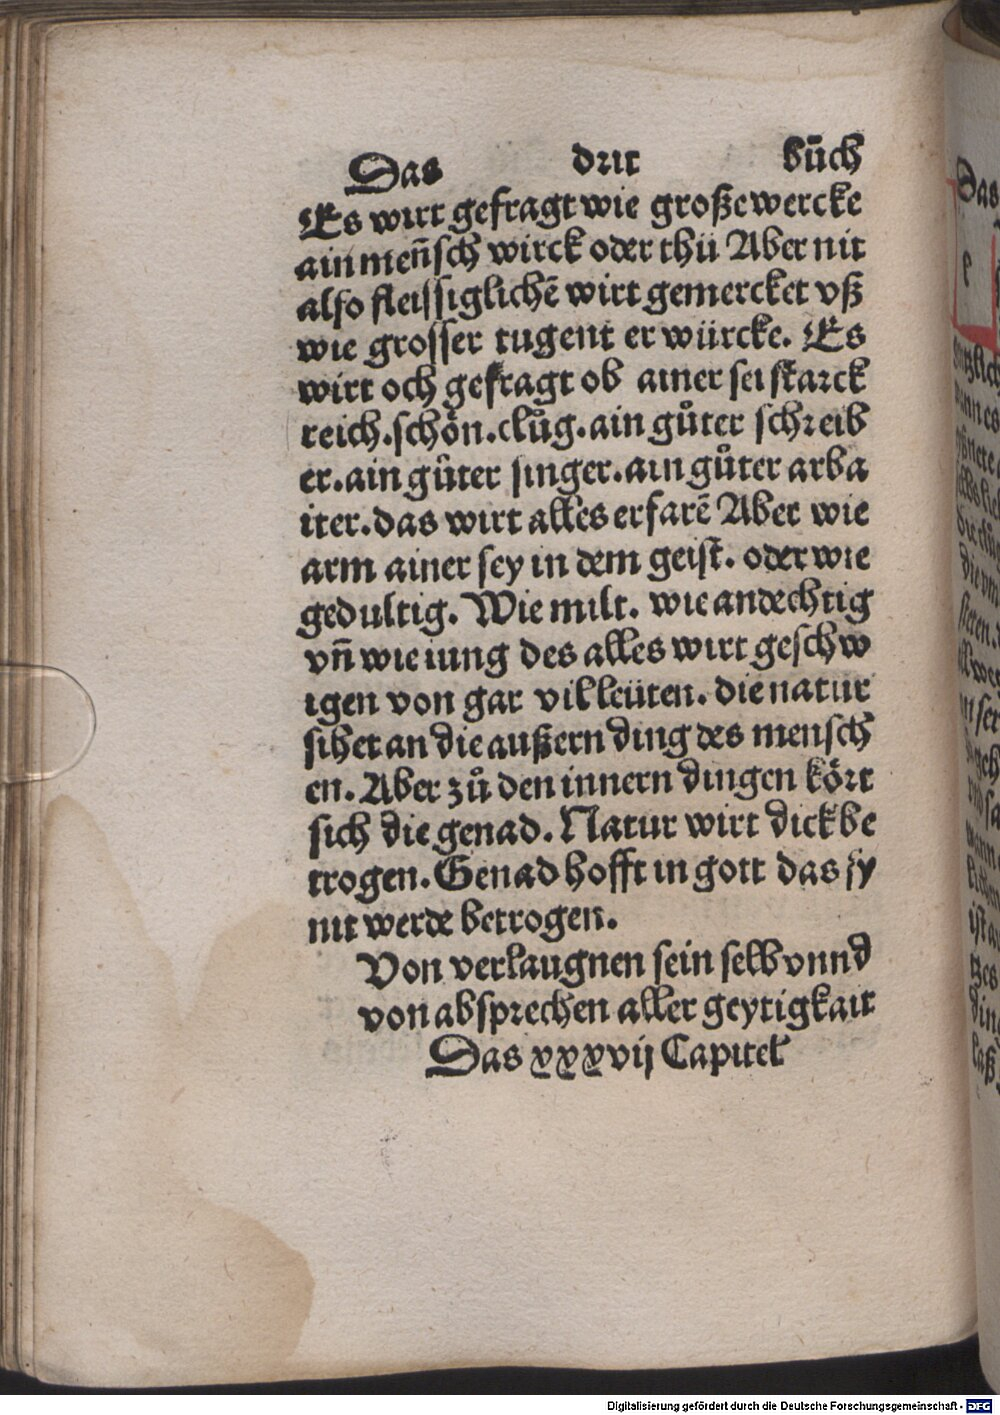 Das drit bůch
Es wirt gefragt wie große wercke
ain meñsch wirck oder thü Aber nit
also fleissiglichē wirt gemercket vß
wie grosser tugent er würcke. Es
wirt och gefragt ob ainer sei starck
reich.schön.clůg.ain gůter schreib
er.ain gůter singer.ain gůter arba
iter.das wirt alles erfarē Aber wie
arm ainer sey in dem geist. oder wie
gedultig. Wie milt. wie andechtig
vñ wie iung des alles wirt geschw
igen von gar vil leüten. die natur
sihet an die außern ding des mensch
en. Aber zů den innern dingen kört
sich die genad. Natur wirt dick be
trogen. Genad hofft in gott das sy
nit werde betrogen.
Von verlaugnen sein selb vnnd
von absprechen aller geytigkait
Das xxxvij Capitel
Das
e
Digitalisierung gefördert durch die Deutsche Forschungsgemeinschaft - DFG